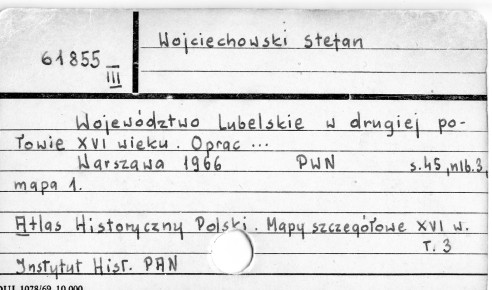 Wojciechowski Stefan
61855
III
Województwo Lubelskie w drugiej po-
łowie XVI wieku. Oprac ...
Warszawa 1966 PWN s.45, nlb.3,
mapa 1.
Atlas Historyczny Polski. Mapy szczegółowe XVI w.
T. 3
Instytut Hist. PAN
1078/69 10.000